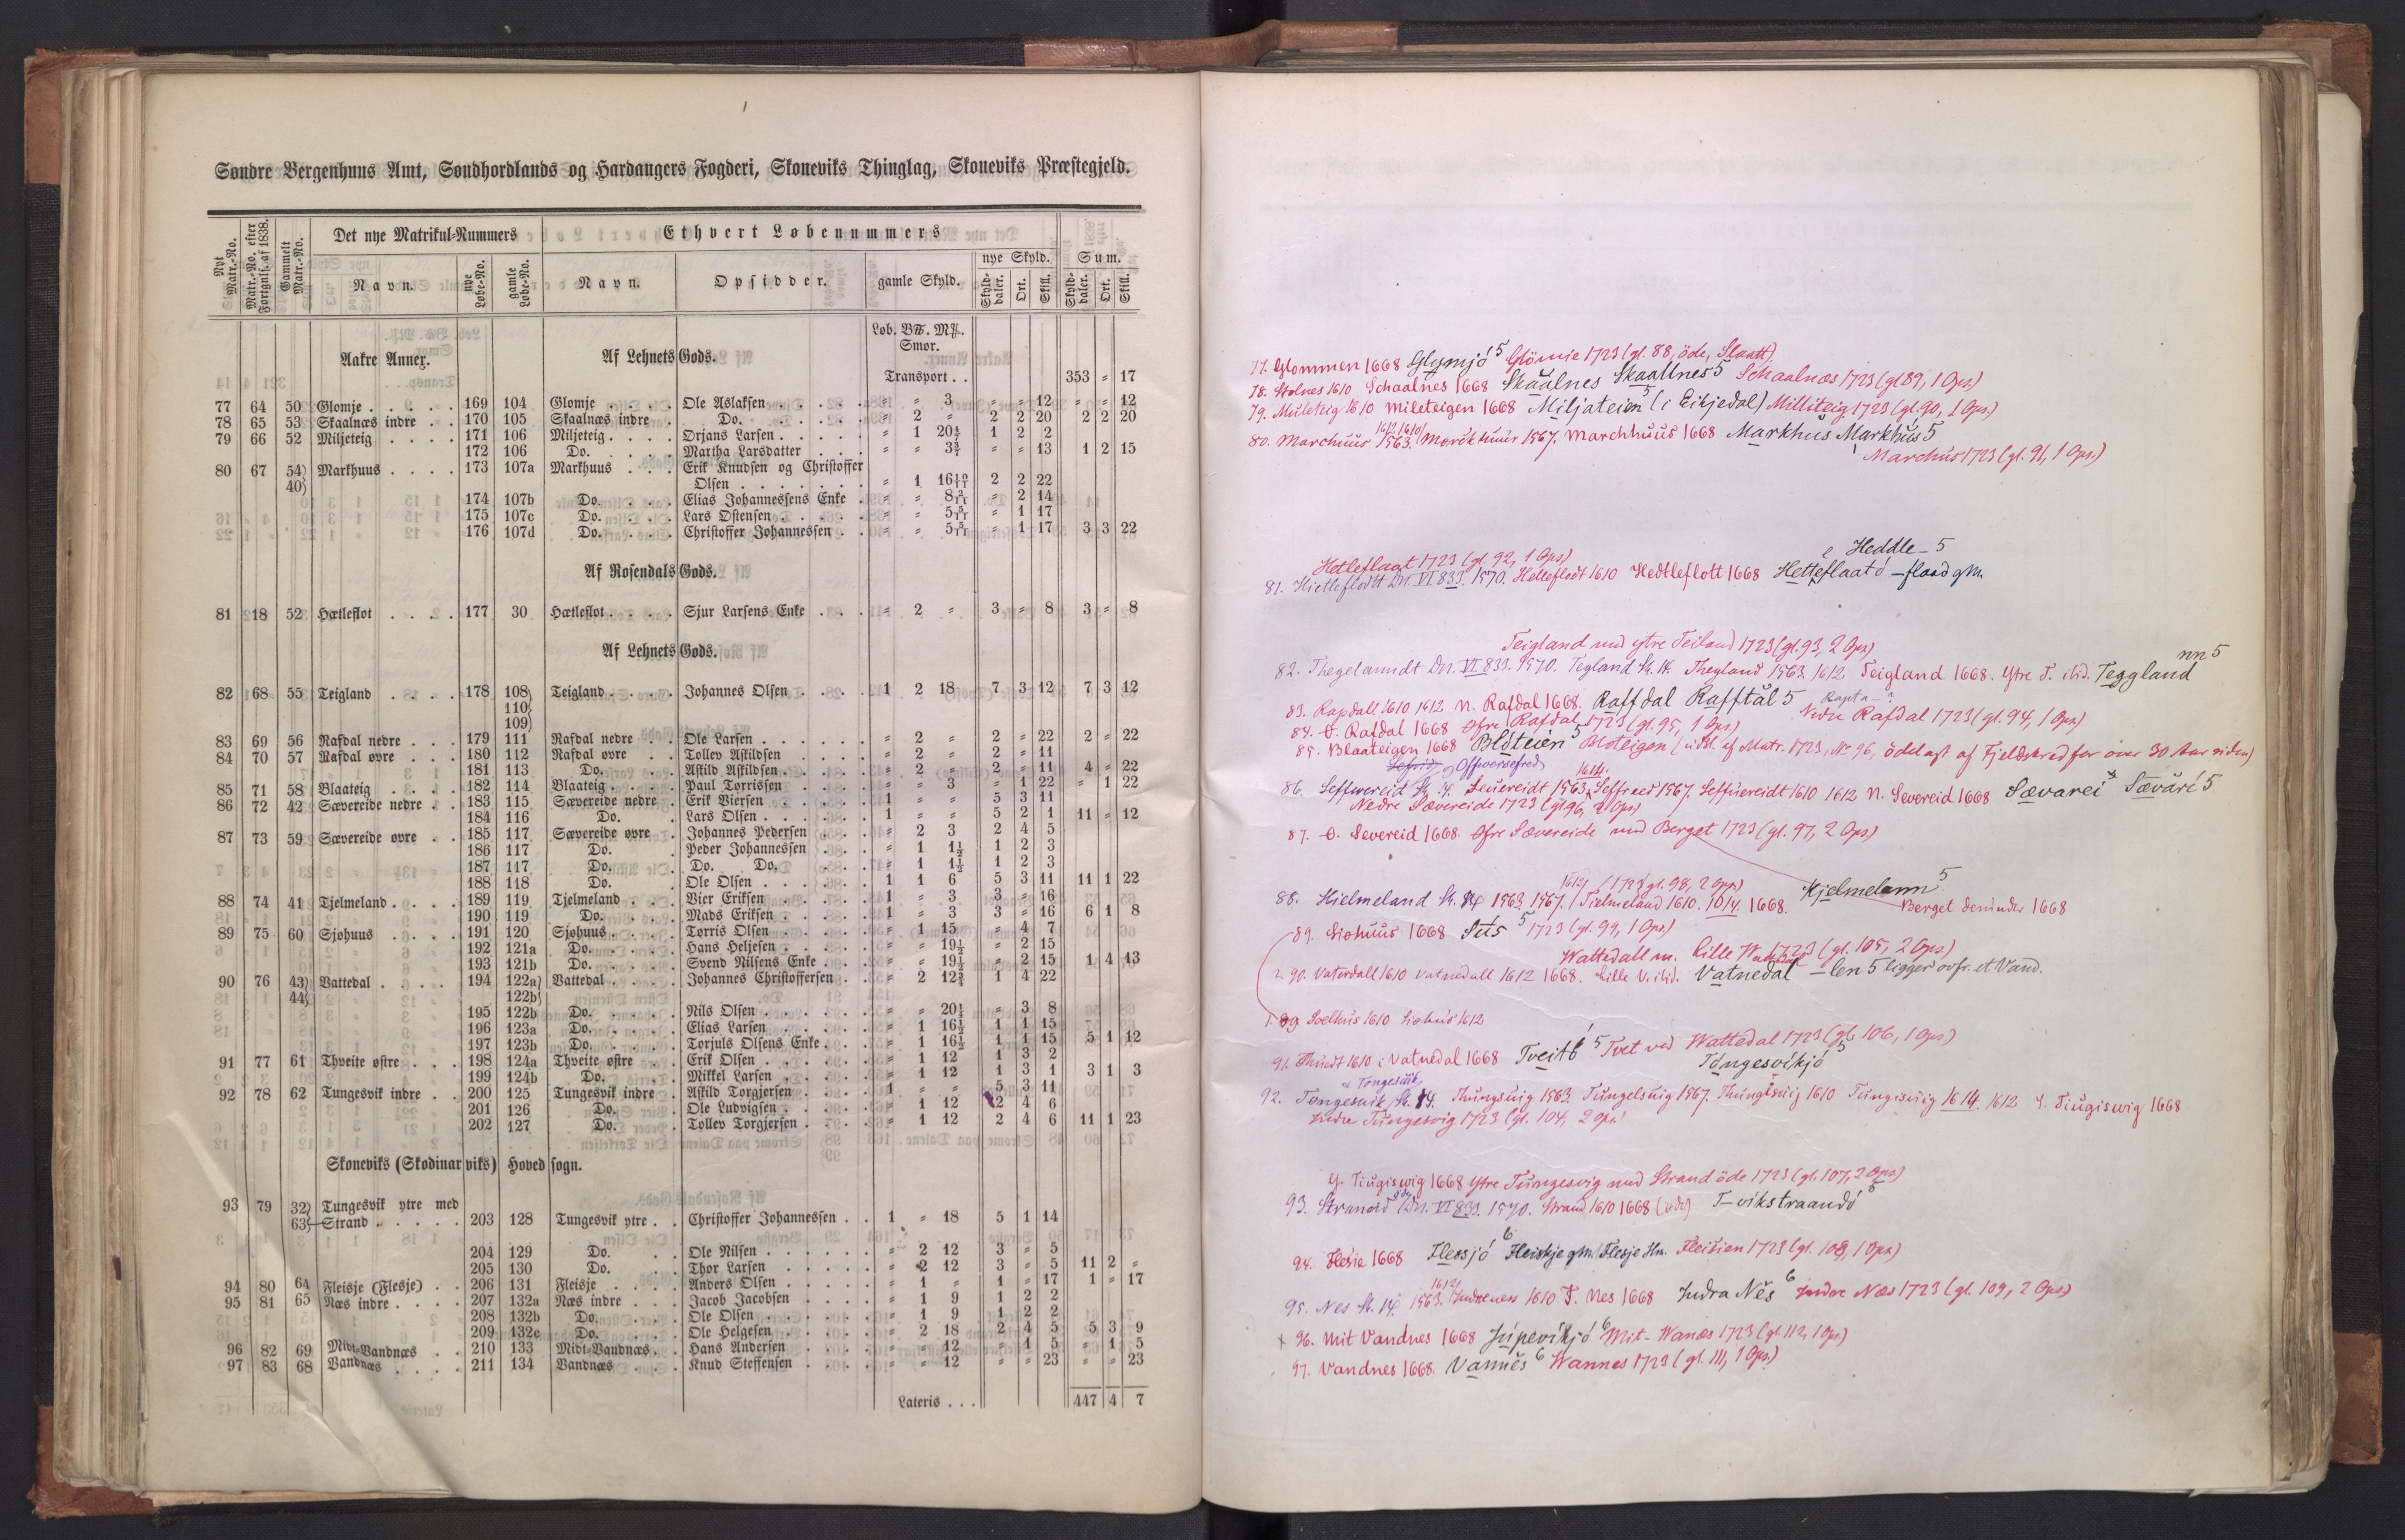 Søndre Bergenhuus Amt, Søndhordlands og Hardangers Fogderi, Skoneviks Thinglag, Skoneviks Præstegjeld.
Nyt Matr.-No. | Matr.-No. efter Fortgnlf. af 1838. | Gammelt Matr.-No. | Det nye Matrikul-Nummers | Ethvert Løbenummers
Navn. | nye Løbe-No. | gamle Løbe-No. | Navn. | Opsidder. | gamle Skyld. | nye Skyld. | Sum.
Skylddaler. | Ort. | Skill. | Skylddaler. | Ort. | Skill.
Løb. B℔. M℔.
Smør.
Aakre Annex. Af Lehnets Gods.
Transport . . 353 " 17
77 64 50 Glomje . . . . . 169 104 Glomje . . . . Ole Aslaksen . . . . . " " 3 " " 12 " " 12
78 65 53 Skaalnæs indre . . 170 105 Skaalnæs indre . Do. . . . . . " 2 " 2 2 20 2 2 20
79 66 52 Miljeteig . . . . 171 106 Miljeteig . . . . Orjans Larsen . . . . . " 1 20 4/7 1 2 2
172 106 Do. . . . . Martha Larsdatter . . . " " 3 3/7 " " 13 1 2 15
80 67 54) Markhuus . . . . 173 107a Markhuus . . . Erik Knudsen og Christoffer
40) Olsen . . . . . . . " 1 16 10/11 2 2 22
174 107b Do. . . . Elias Johannessens Enke . " " 8 2/11 " 2 14
175 107c Do. . . . Lars Ostensen . . . . . " " 5 5/11 " 1 17
176 107d Do. . . . Christoffer Johannessen . . " " 5 5/11 " 1 17 3 3 22
Af Rosendals Gods.
81 18 52 Hætleflot . . . . 177 30 Hætleflot . . . . Sjur Larsens Enke . . . " 2 " 3 " 8 3 " 8
Af Lehnets Gods.
82 68 55 Teigland . . . . 178 108) Teigland . . . . Johannes Olsen . . . . 1 2 18 7 3 12 7 3 12
110)
109)
83 69 56 Rafdal nedre . . . 179 111 Rafdal nedre . . Ole Larsen . . . . . . " 2 " 2 " 22 2 " 22
84 70 57 Rafdal øvre . . . 180 112 Rafdal øvre . . Tollev Askildsen . . . . " 2 " 2 " 11
181 113 Do. . . . Askild Askildsen . . . . " 2 " 2 " 11 4 " 22
85 71 58 Blaateig . . . . 182 114 Blaateig . . . . Paul Torrissen . . . . " " 3 " 1 22 " 1 22
86 72 42 Sævereide nedre . . 183 115 Sævereide nedre . Erik Viersen . . . . . 1 " " 5 3 11
184 116 Do. . Lars Olsen . . . . . . 1 " " 5 2 1 11 " 12
87 73 59 Sævereide øvre . . 185 117 Sævereide øvre . Johannes Pedersen . . . " 2 3 2 4 5
186 117 Do. . Peder Johannessen . . . " 1 1 1/2 1 2 3
187 117 Do. . Do. Do. . . . " 1 1 1/2 1 2 3
188 118 Do. . Ole Olsen . . . . . . 1 1 6 5 3 11 11 1 22
88 74 41 Tjelmeland . . . . 189 119 Tjelmeland . . . Vier Eriksen . . . . . 1 " 3 3 " 16
190 119 Do. . . . Mads Eriksen . . . . . 1 " 3 3 " 16 6 1 8
89 75 60 Sjohuus . . . . 191 120 Sjohuus . . . . Torris Olsen . . . . . " 1 15 " 4 7
192 121a Do. . . . . Hans Heljesen . . . . . " " 19 1/2 " 2 15
193 121b Do. . . . . Svend Nilsens Enke . . . " " 19 1/2 " 2 15 1 4 13
90 76 43) Vattedal . . . . . 194 122a) Vattedal . . . . Johannes Christoffersen . . " 2 12 3/4 1 4 22
44) 122b)
195 122b Do. . . . . Nils Olsen . . . . . . " " 20 1/4 " 3 8
196 123a Do. . . . . Elias Larsen . . . . . " 1 16 1/2 1 1 15
197 123b Do. . . . . Torjuls Olsens Enke . . . " 1 16 1/2 1 1 15 5 1 12
91 77 61 Thveite østre . . . 198 124a Thveite østre . . Erik Olsen . . . . . . " 1 12 1 3 2
199 124b Do. . . Mikkel Larsen . . . . . " 1 12 1 3 1 3 1 3
92 78 62 Tungesvik indre . . 200 125 Tungesvik indre . Askild Torgjersen . . . . 1 " " 5 3 11
201 126 Do. . Ole Ludvigsen . . . . . " 1 12 2 4 6
202 127 Do. . Tollev Torgjersen . . . . " 1 12 2 4 6 11 1 23
Skoneviks (Skodinarviks) Hovedsogn.
93 79 32) Tungesvik ytre med
63) Strand . . . . . 203 128 Tungesvik ytre . . Christoffer Johannessen . . 1 " 18 5 1 14
204 129 Do. . . Ole Nilsen . . . . . . " 2 12 3 " 5
205 130 Do. . . Thor Larsen . . . . . " 2 12 3 " 5 11 2 "
94 80 64 Fleisje (Flesje) . . 206 131 Fleisje . . . . Anders Olsen . . . . . " 1 " 1 " 17 1 " 17
95 81 65 Næs indre . . . . 207 132a Næs indre . . . Jacob Jacobsen . . . . " 1 9 1 2 2
208 132b Do. . . . Ole Olsen . . . . . . " 1 9 1 2 2
209 132c Do. . . . Ole Helgesen . . . . . " 2 18 2 4 5 5 3 9
96 82 69 Midt-Vandnæs . . 210 133 Midt-Vandnæs . . Hans Andersen . . . . " " 12 " 1 5 " 1 5
97 83 68 Vandnæs . . . . 211 134 Vandnæs . . . Knud Steffensen . . . . " " 12 " " 23 " " 23
Lateris . . . 447 4 7
77. Glommen 1668 Glymjó 5 Glömie 1723 (gl. 88, öde, Slaatt)
78. Skolnes 1610 Schaalnes 1668 Skaalnes Skaallnes 5 Schaalnæs 1723 (gl 89, 1 Ops)
79. Mileteig 1610 Mileteigen 1668 Miljateien 5 (i Eikjedal) Milliteig 1723 (gl. 90, 1 Ops.)
80. Marchuus 1563. 1612 1610 1567. Marchhuus 1668 Markhus Markhús 5
Marchus 1723 (gl. 91, 1 Ops.)
Heddle- 5
Hetleflaat 1723 (gl. 92, 1 Ops)
81. Hietleflodtt Dn. VI 833. 1570. Hetleflodt 1610 Hedtleflott 1668 Hetteflaató -flaad gM.
Teigland med ytre Teiland 1723 (gl. 93, 2 Ops)
nn 5
82. Thegelanndt Dn. VI 833. 1570. Tegland St. 14. Thegland 1563. 1612 Teigland 1668. Ytre T. ibid. Teggland
83. Rapdall 1610 1612 N. Rafdal 1668. Raffdal Rafftål 5 Rapta- ? Nedre Rafdal 1723 (gl. 94, 1 Ops)
84. O. Rafdal 1668 Øfre Rafdal 1723 (gl. 95, 1 Ops)
85. Blaateigen 1668 Blóteien 5 Bloteigen (udsl. af Matr. 1723, No 96, ödelagt af Fjeldskred for over 30 Aar siden)
Offwersefred
86. Seffwereid St. 14. Seuereidt 1563. 1614. Seffreed 1567. Seffuereidt 1610 1612 N. Severeid 1668 Sævarei Sævarí 5
Nedre Sævereide 1723 (gl 96, 2 Ops)
87. O. Severeid 1668. Øfre Sævereide med Berget 1723 (gl. 97, 2 Ops)
1612 (1723 gl. 98, 2 Ops)
88. Hielmeland St. 14 1563. 1567. Tielmeland 1610. 1614. 1668. Kjelmelann 5
Berget derunder 1668
89. Siohuus 1668 5 1723 (gl. 99, 1 Ops.)
Wattedall m. Lille Wattedal 1723 (gl. 105, 2 Ops.)
2. 90. Vaterdall 1610 Vatnedall 1612 1668. Lille V. ibid. Vatnedal -len 5 ligger ovfr. et Vand.
1. 89 Soelhus 1610 Siohus 1612
91. Thuedt 1610 i Vatnedal 1668 Tveitó 5 Tvet ved Wattedal 1723 (gl. 106, 1 Ops)
Tongesvikjó 5
Tongesuik
92. Tengesuik St. 14. Thungsuig 1563. Tungelsuig 1567. Thungisuig 1610 Tungisuig 1614. 1612 I. Tiugiswig 1668
Indre Tungesvig 1723 (gl. 104, 2 Ops)
Y. Tiugiswig 1668 Ytre Tungesvig med Strand öde 1723 (gl. 107, 2 Ops)
93. Strannd Dn. VI 833. 1570. Strand 1610 1668 (ode) T-vikstraandó 5
94. Flesie 1668 Flessjó 6 Fleiskje gM. Flesje Hn. Fleisien 1723 (gl. 108, 1 Ops)
95. Nes St. 14. 1563. 1612 Indrenes 1610 I. Nes 1668 Indra Nes 6 Indre Næs 1723 (gl. 109, 2 Ops)
x 96. Mit Vandnes 1668 Júpevikjó 6 Mit-Wanæs 1723 (gl. 112, 1 Ops.)
97. Vandnes 1668. Vannes 6 Wannes 1723 (gl. 111, 1 Ops.)